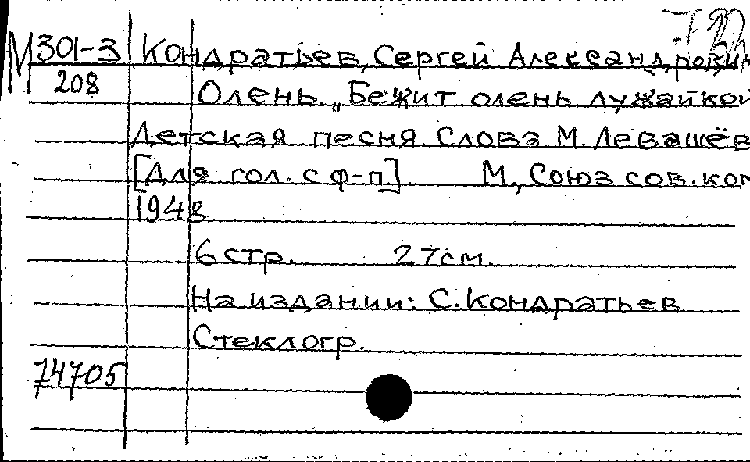 М 301-3 Кондратьев, Сергей Александрович
208 Олень. „Бежит олень лужайкой
Детская песня Слова М. Левашёв
[Для гол. с ф-п] М., Союз сов. ком
1948
6 стр. 27 см.
На издании: С. Кондратьев
Стеклогр.
74705